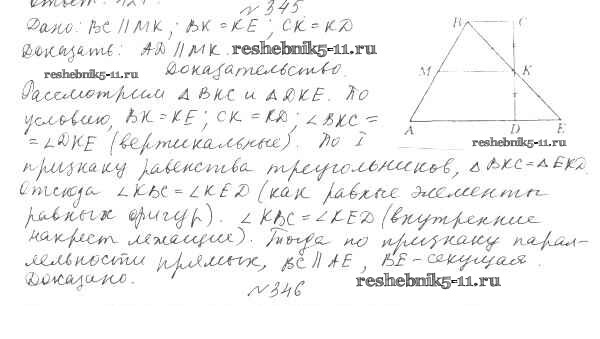 Ответ: 12 .
№ 345
Дано: BC ∥ MK; BK = KE; CK = KD
Доказать: AD ∥ MK. reshebnik5-11.ru
reshebnik5-11.ru Доказательство.
Рассмотрим △ BKC и △ DKE. По
условию, BK = KE; CK = KD, ∠BKC =
= ∠DKE (вертикальные). По I
признаку равенства треугольников, △ BKC = △ EKD.
Отсюда ∠ KBC = ∠ KED (как равные элементы
равных фигур). ∠ KBC = ∠ KED (внутренние
накрест лежащие). Тогда по признаку парал-
лельности прямых, BC ∥ AE, BE - секущая.
Доказано.
№ 346
reshebnik5-11.ru
B C
M K
A D E
reshebnik5-11.ru